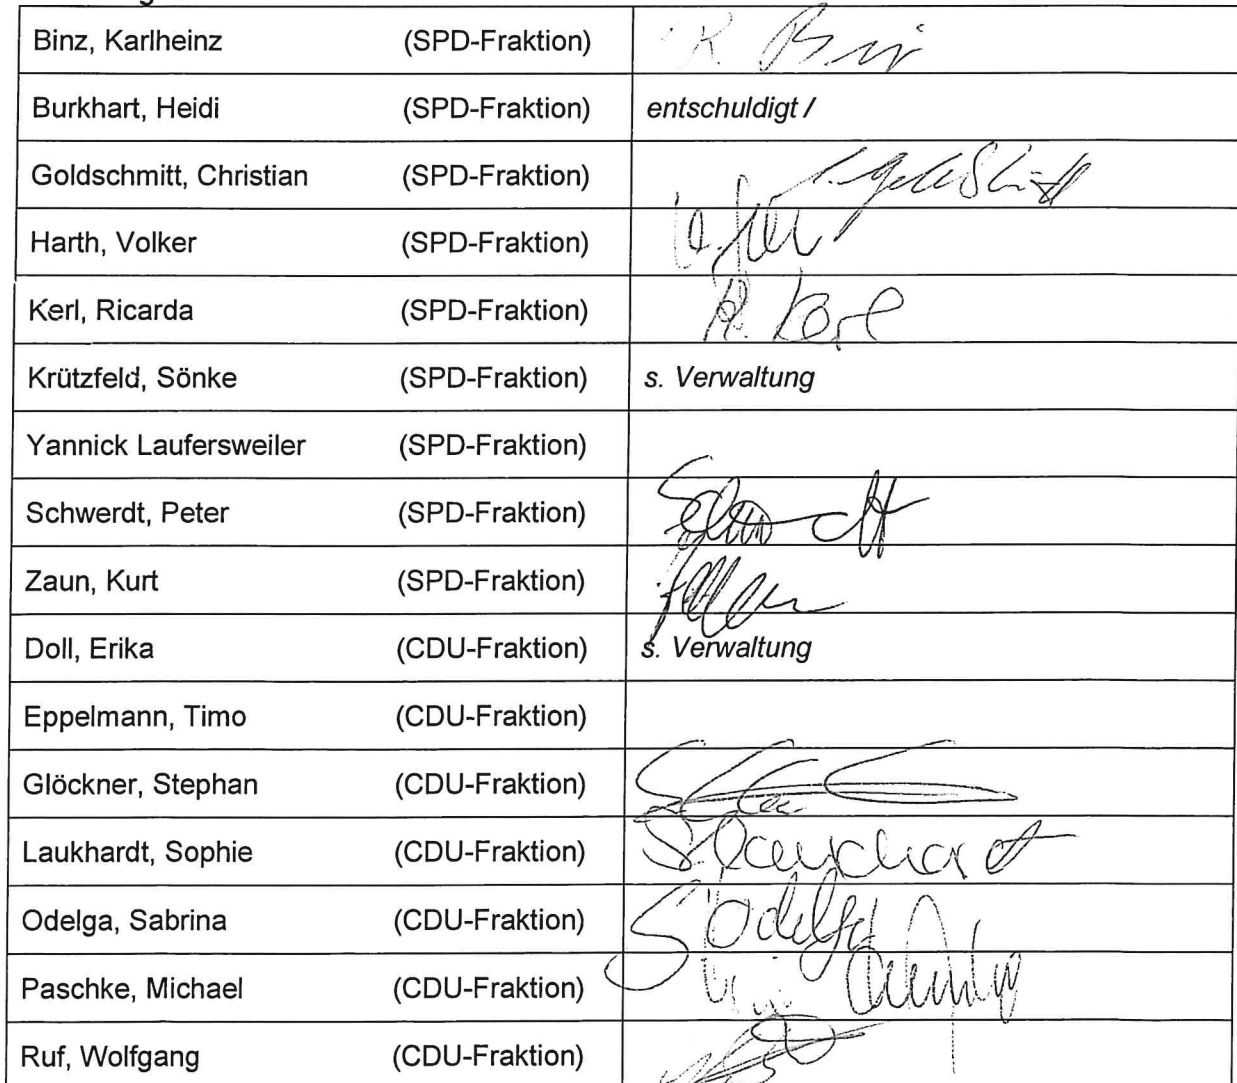 Binz, Karlheinz (SPD-Fraktion) K. Binz
Burkhart, Heidi (SPD-Fraktion) entschuldigt /
Goldschmitt, Christian (SPD-Fraktion)
Harth, Volker (SPD-Fraktion)
Kerl, Ricarda (SPD-Fraktion) R. Kerl
Krützfeld, Sönke (SPD-Fraktion) s. Verwaltung
Yannick Laufersweiler (SPD-Fraktion)
Schwerdt, Peter (SPD-Fraktion) Schwerdt
Zaun, Kurt (SPD-Fraktion)
Doll, Erika (CDU-Fraktion) s. Verwaltung
Eppelmann, Timo (CDU-Fraktion)
Glöckner, Stephan (CDU-Fraktion)
Laukhardt, Sophie (CDU-Fraktion) S. Laukhardt
Odelga, Sabrina (CDU-Fraktion) S. Odelga
Paschke, Michael (CDU-Fraktion)
Ruf, Wolfgang (CDU-Fraktion)